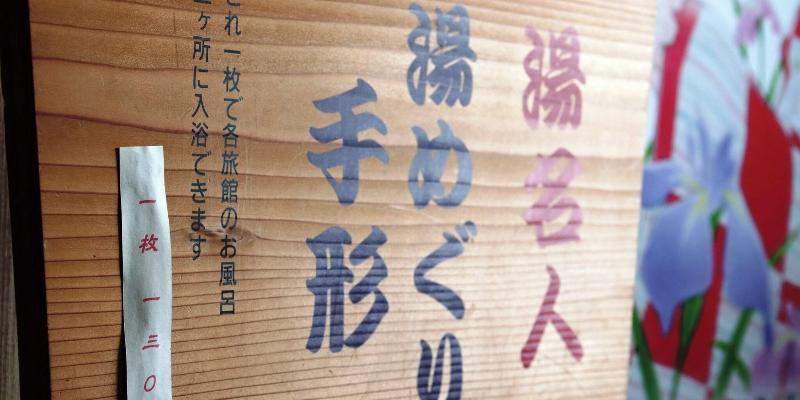 湯名人
湯めぐり
手形
これ一枚で各旅館のお風呂
ヶ所に入浴できます
一枚 一三〇